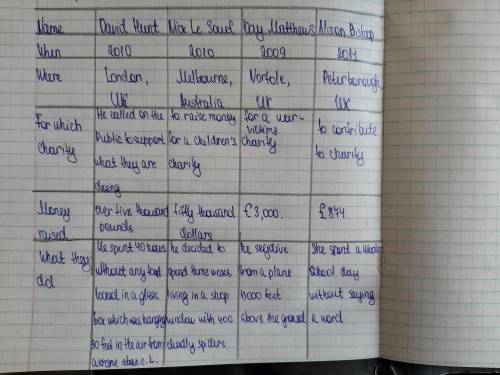 Name David Hunt Nick Le Souef Day Matthews Alison Bishop
When 2010 2010 2009 2011
Where London, UK Melbourne, Australia Norfolk, UK Peterborough, UK
For which charity
He called on the
Public to support
what they are
doing
to raise money
for a children's
charity
for a war-
victims
charity
to contribute
to charity
Money
raised
over five thousand
pounds
fifty thousand
dollars
£3,000.
£874
What they
did
He spent 40 hours
without any food
in a glass
box which was hanging
30 feet in the air from
a crane
he decided to
spend three weeks
living in a shop
window with 400
deadly spiders
he skydive
from a plane
feet
above the ground
She spent a whole
school day
without saying
a word